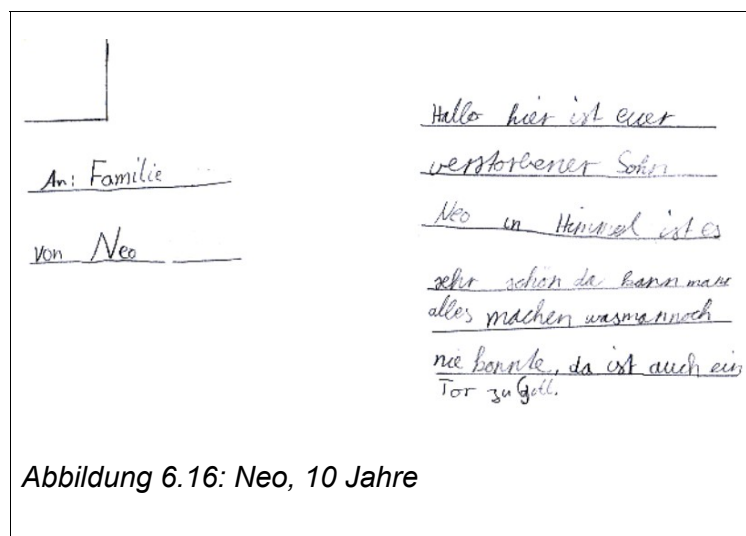 An: Familie
von Neo
Hallo hier ist euer
verstorbener Sohn
Neo in Himmel ist es
sehr schön da kann man
alles machen wasmannoch
nie konnte, da ist auch ein
Tor zu Gott.
Abbildung 6.16: Neo, 10 Jahre